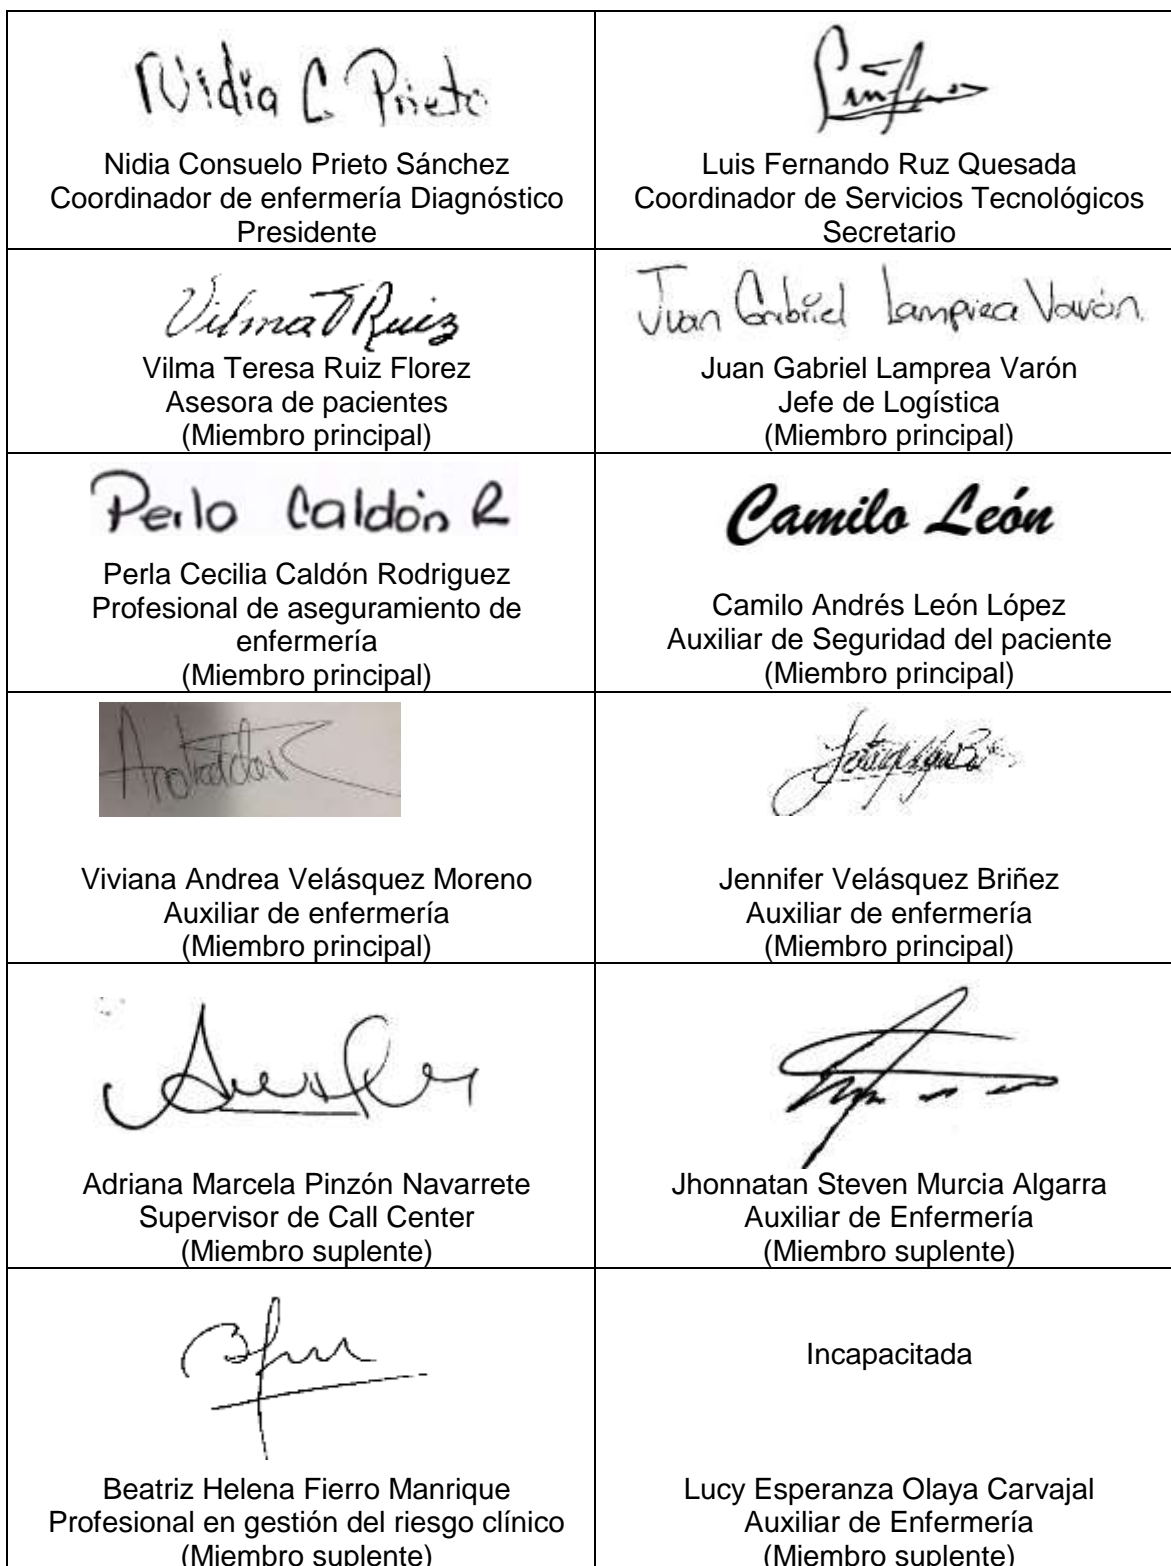 Nidia C. Prieto
Nidia Consuelo Prieto Sánchez
Coordinador de enfermería Diagnóstico
Presidente
Luis Fernando Ruz Quesada
Coordinador de Servicios Tecnológicos
Secretario
Vilma T Ruiz
Vilma Teresa Ruiz Florez
Asesora de pacientes
(Miembro principal)
Juan Gabriel Lamprea Varón
Juan Gabriel Lamprea Varón
Jefe de Logística
(Miembro principal)
Perla Caldón R
Perla Cecilia Caldón Rodriguez
Profesional de aseguramiento de
enfermería
(Miembro principal)
Camilo León
Camilo Andrés León López
Auxiliar de Seguridad del paciente
(Miembro principal)
Viviana Andrea Velásquez Moreno
Auxiliar de enfermería
(Miembro principal)
Jennifer Velásquez Briñez
Auxiliar de enfermería
(Miembro principal)
Adriana Marcela Pinzón Navarrete
Supervisor de Call Center
(Miembro suplente)
Jhonnatan Steven Murcia Algarra
Auxiliar de Enfermería
(Miembro suplente)
Beatriz Helena Fierro Manrique
Profesional en gestión del riesgo clínico
(Miembro suplente)
Incapacitada
Lucy Esperanza Olaya Carvajal
Auxiliar de Enfermería
(Miembro suplente)